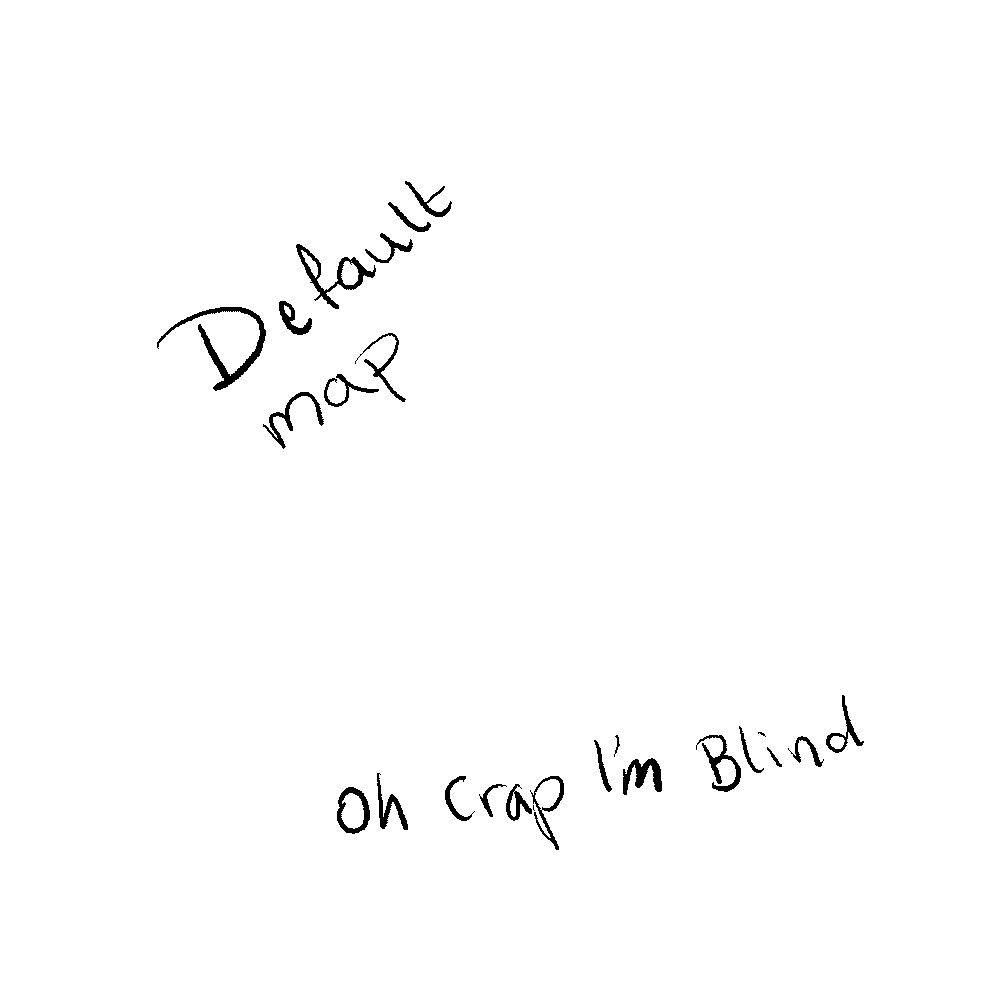 Default
map
Oh Crap I'm Blind